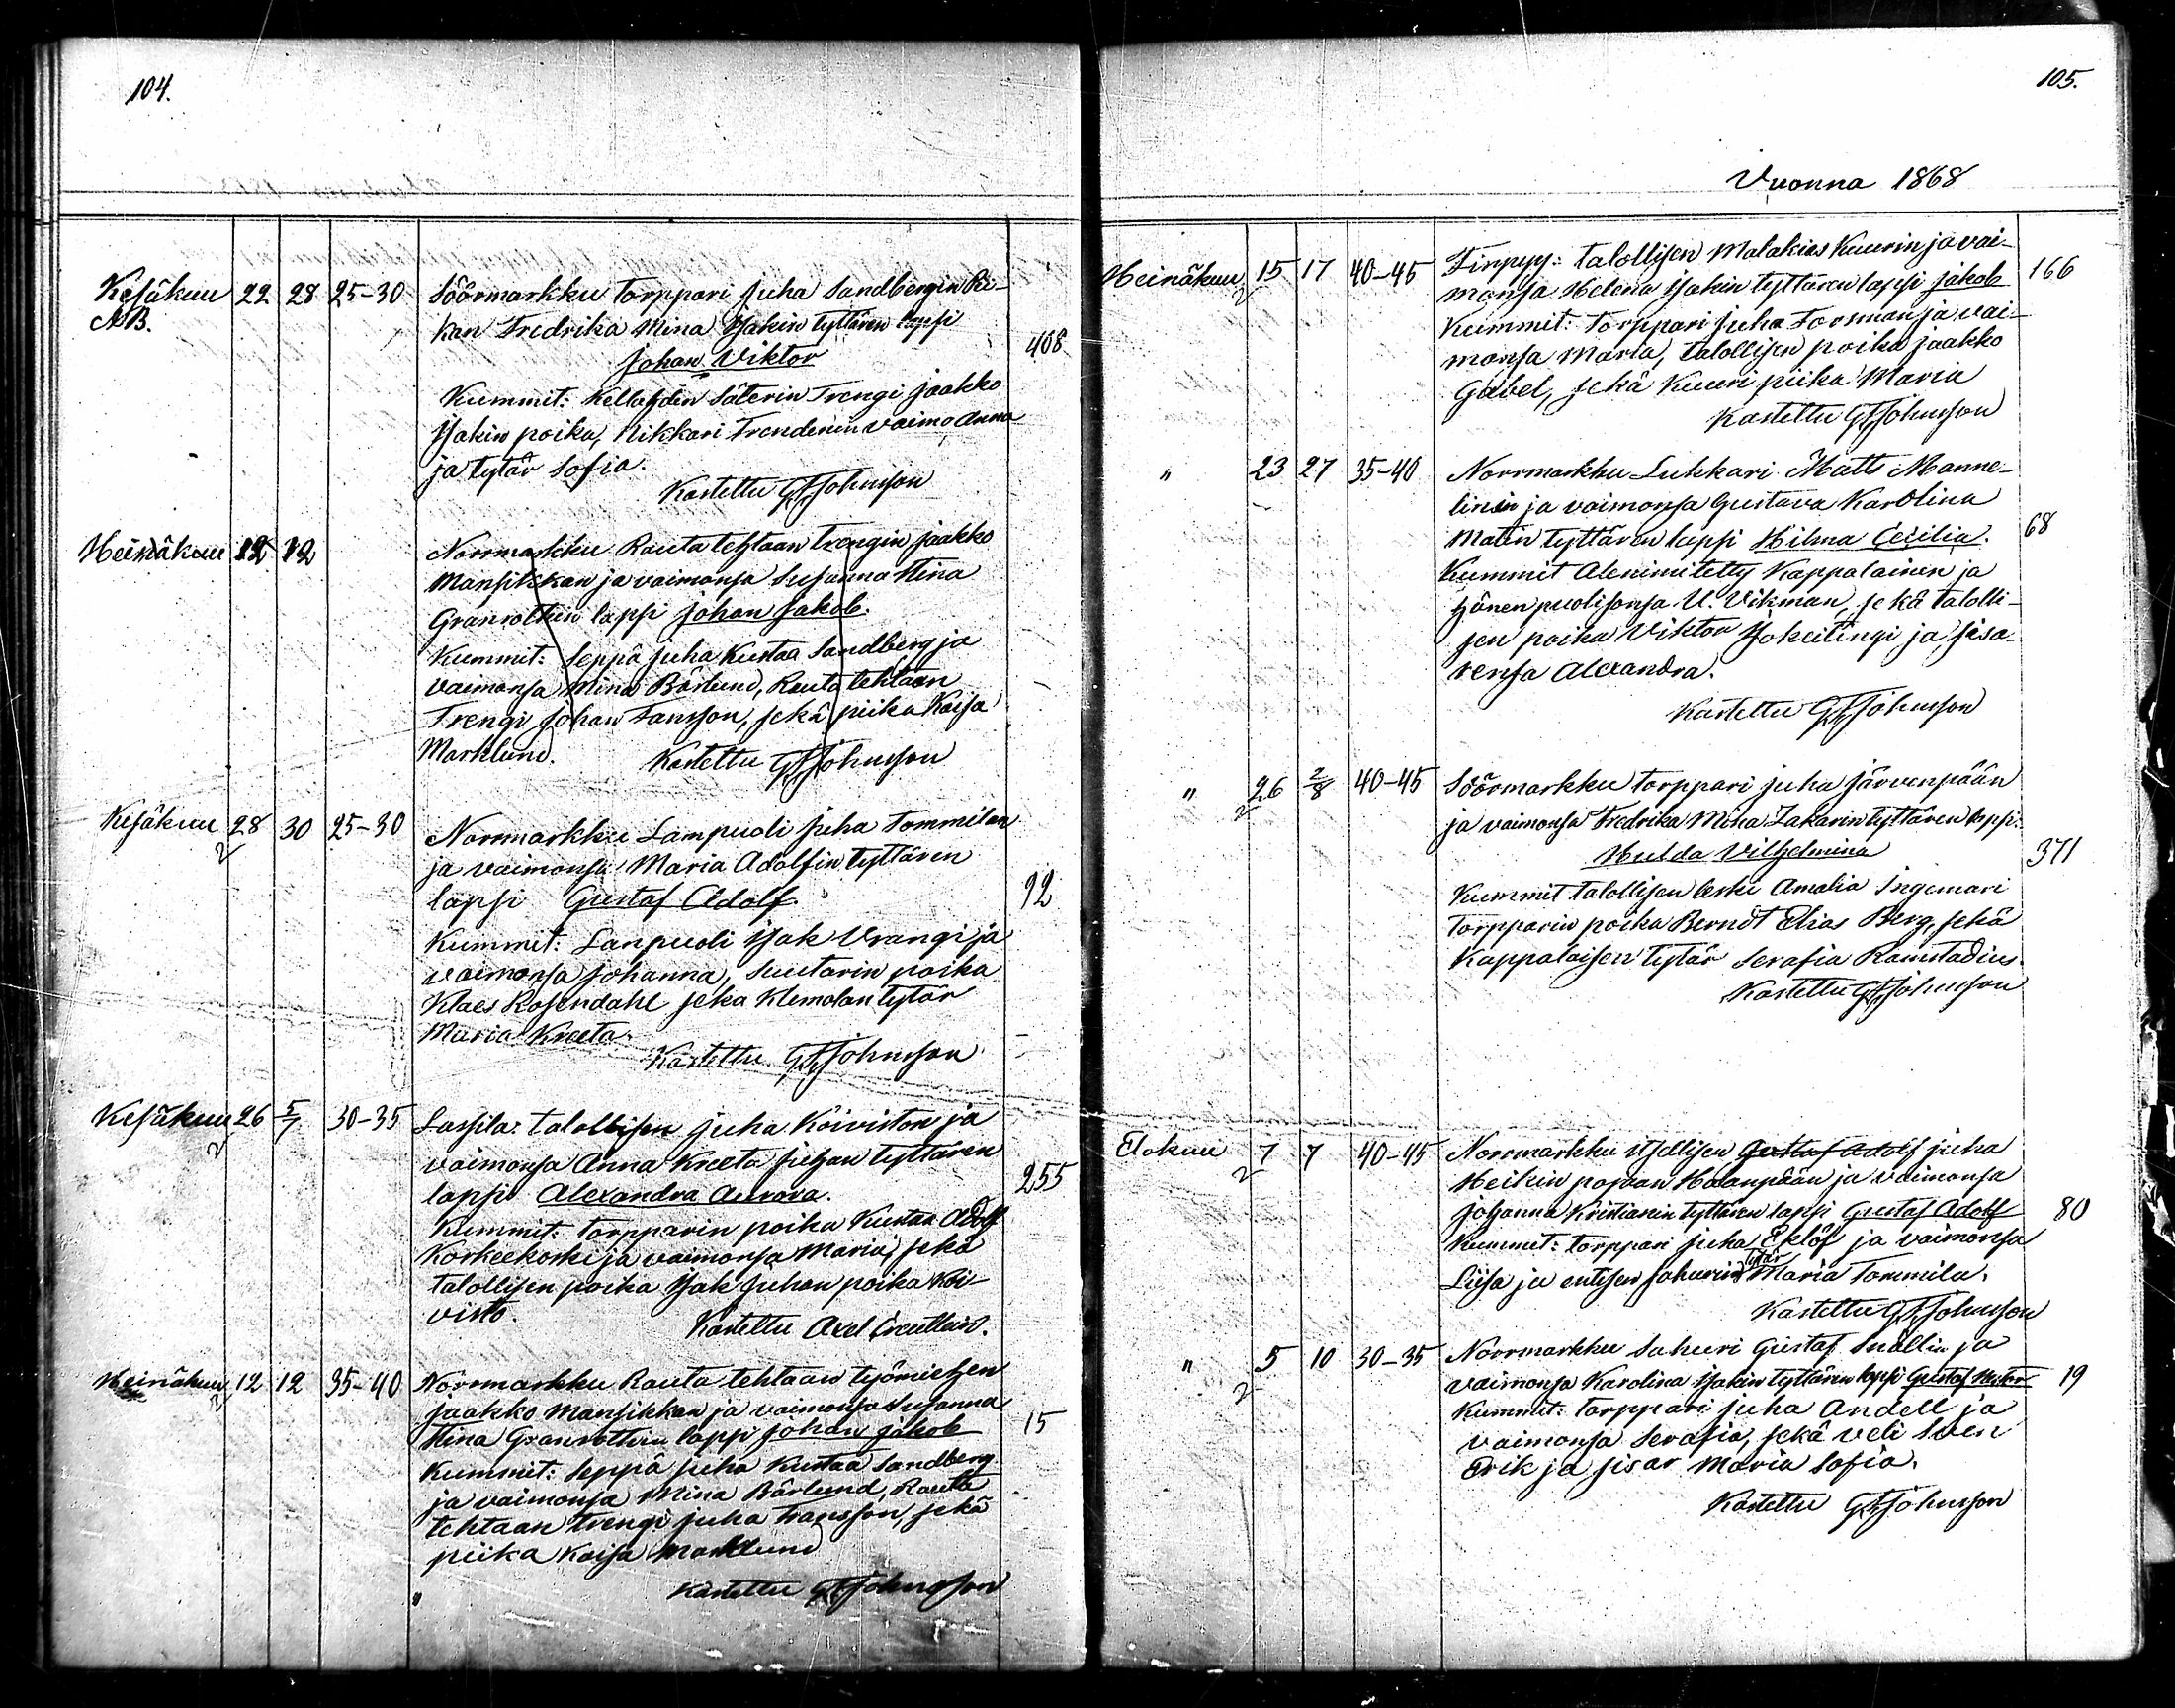 104.
Kesäkuu 22 28 25-30 Söörmarkku torppari Juha Sandbergin Rii-
AB.
kan Fredrika Mina Isakin tyttären lapsi
Johan Viktor 408
Kummit: Kellahden Säterin Trengi Jaakko
Isakin poika, Nikkari Trendenin vaimo Anna
ja tytär Sofia.
Kastettu G F Johnsson
Heinäkuu 12 12 Norrmarkku Rauta tehtaan trengin Jaakko
Mansikkan ja vaimonsa Susanna Stina
Granrothin lapsi Johan Jakob.
Kummit: Seppä Juha Kustaa Sandberg ja
vaimonsa Mina Bärlund, Rauta tehtaan
Trengi Johan Fansson, sekä piika Kaisa
Marklund. Kastettu G F Johnsson
Kesäkuu 28 30 25-30 Norrmarkku Lampuoli Juha Tommilan
2
ja vaimonsa Maria Adolfin tyttären
lapsi Gustaf Adolf 92
Kummit: Lanpuoli Isak Vrangi ja
vaimonsa Johanna, Suutarin poika
Klaes Rosendahl seka Klemolan tytär
Maria Kreeta.
Kastettu G F Johnsson
Kesäkuu 26 5/7 30-35 Lassila: talollisen Juha Koiviston ja
2
vaimonsa Anna Kreeta Juhan tyttären
lapsi Alexandra Aurora. 255
Kummit: torpparin poika Kustaa Adolf
Korkeekoski ja vaimonsa Maria, sekä
talollisen poika Isak Juhan poika Koi-
visto. Kastettu Axel Creutlein.
Heinäkuu 12 12 35-40 Norrmarkku Rauta tehtaan työmiehen
2
Jaakko Mansikkan ja vaimonsa Susanna
Stina Granrothin lapsi Johan Jakob 15
Kummit: Seppä Juha Kustaa Sandberg
ja vaimonsa Mina Bärlund, Rauta
tehtaan trengi Juha Fransson, sekä
piika Kaisa Marklund
Kastettu G F Johnsson
105.
Vuonna 1868
Heinäkuu 15 17 40-45 Finpyy: talollisen Malakias Kuurin ja vai- 166
2
monsa Helena Isakin tyttären lapsi Jakob
Kummit: Torppari Juha Forsman ja vai-
monsa Maria, talollisen poika Jaakko
Gabel, sekä Kuuri piika Maria
Kastettu G F Johnsson
" 23 27 35-40 Norrmarkku Lukkari Matts Manne-
linin ja vaimonsa Gustava Karolina
Matin tyttären lapsi Hilma Cecilia. 68
Kummit Alenimitetty Kappalainen ja
hänen puolisonsa U. Vikman, sekä talolli-
sen poika Viktor Isokeitingi ja sisa-
rensa Alexandra.
Kastettu G F Johnsson
" 26 2/8 40-45 Söörmarkku torppari Juha Järvenpään
2
ja vaimonsa Fredrika Mina Zakarin tyttären lapsi
Hulda Vilhelmina 371
Kummit talollisen leski Amalia Ingemari
torpparin poika Berndt Elias Berg, sekä
Kappalaisen tytär Serafia Ramstadius.
Kastettu G F Johnsson
Elokuu 7 7 40-45 Norrmarkku itsellisen Gustaf Adolf Juha
2
Heikin pojaan Haanpään ja vaimonsa
Johanna Kristianin tyttären lapsi Gustaf Adolf 80
Kummit: torppari Juha Eklöf ja vaimonsa
Liisa ja entisen Sahurin tytär Maria Tommila.
Kastettu G F Johnsson
" 5 10 30-35 Norrmarkku Sahuri Gustaf Snällin ja
2
vaimonsa Karolina Isakin tyttären lapsi Gustaf Nestor 19
Kummit: torppari Juha Andell ja
vaimonsa Serafia, sekä veli Sven
Erik ja sisar Maria Sofia.
Kastettu G F Johnsson